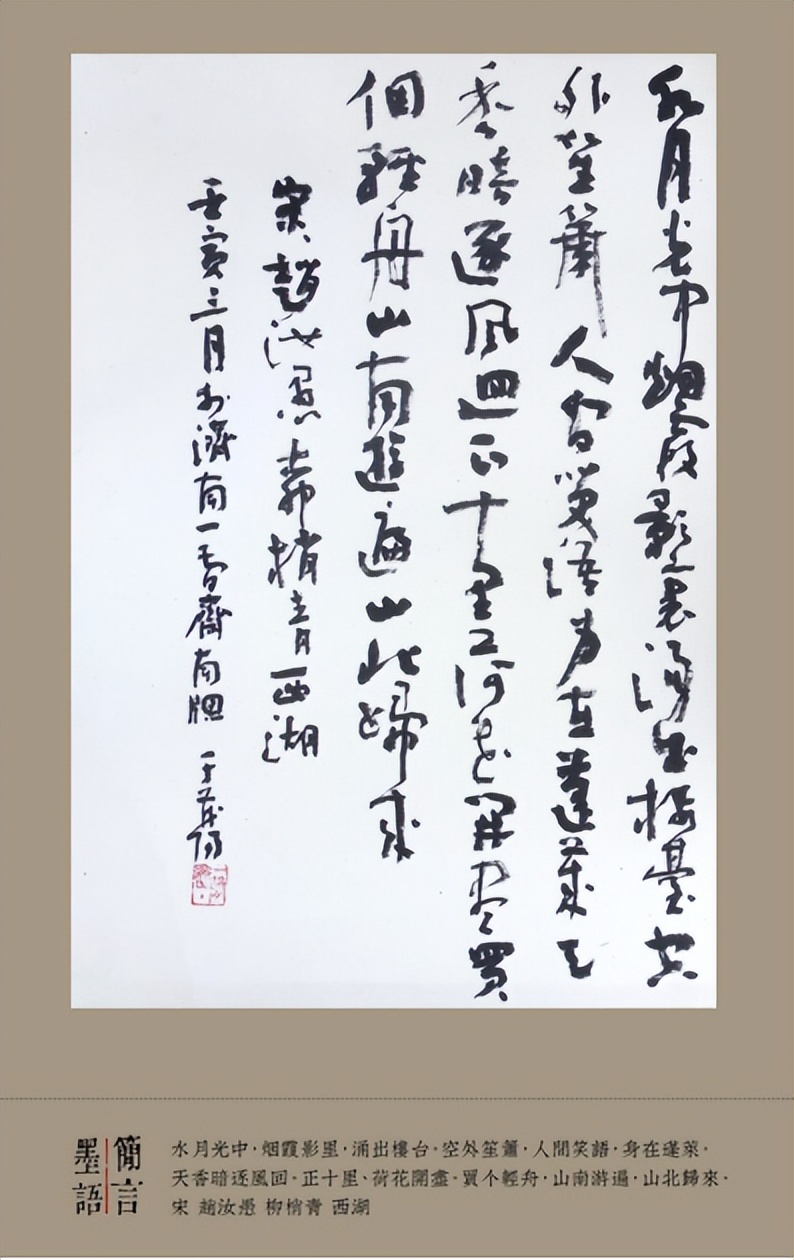 水月光中烟霞影裏涌出樓臺空
外笙簫人間笑語身在蓬萊天
香暗逐風迴正十里荷花開盡買
個輕舟山南遊遍山北歸來
宋趙汝愚柳梢青西湖
壬寅三月於濟南一香齋南牕
簡言
墨語
水月光中·烟霞影里·涌出樓台·空外笙簫·人間笑語·身在蓬萊·
天香暗逐風回·正十里、荷花開盡·買个輕舟·山南游遍·山北歸來·
宋 趙汝愚 柳梢青 西湖